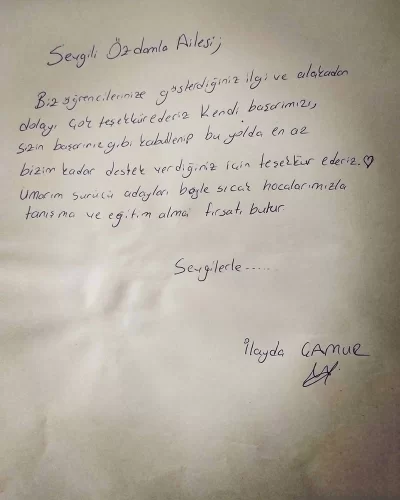 Sevgili Özdamla Ailesi;
Biz öğrencilerinize gösterdiğiniz ilgi ve alakadan
dolayı çok teşekkür ederiz Kendi başarımızı,
sizin başarınız gibi kabullenip bu yolda en az
bizim kadar destek verdiğiniz için teşekkür ederiz.♡
Umarım sürücü adayları böyle sıcak hocalarımızla
tanışma ve eğitim alma fırsatı bulur
Sevgilerle.....
İlayda ÇAMUR